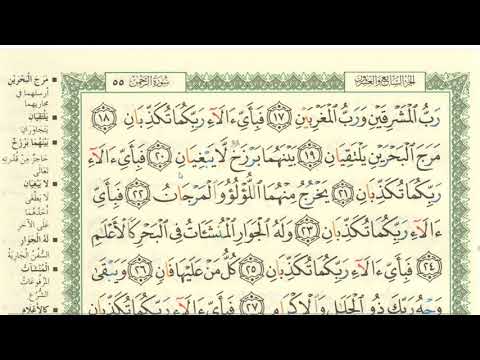 الجزء السابع والعشرون
٥٥
سورة الرحمن
رَبُّ الْمَشْرِقَيْنِ وَرَبُّ الْمَغْرِبَيْنِ ١٧ فَبِأَيِّ ءَالَآءِ رَبِّكُمَا تُكَذِّبَانِ ١٨
مَرَجَ الْبَحْرَيْنِ يَلْتَقِيَانِ ١٩ بَيْنَهُمَا بَرْزَخٌ لَّا يَبْغِيَانِ ٢٠ فَبِأَيِّ ءَالَآءِ
رَبِّكُمَا تُكَذِّبَانِ ٢١ يَخْرُجُ مِنْهُمَا اللُّؤْلُؤُ وَالْمَرْجَانُ ٢٢ فَبِأَيِّ
ءَالَآءِ رَبِّكُمَا تُكَذِّبَانِ ٢٣ وَلَهُ الْجَوَارِ الْمُنشَـَٔاتُ فِي الْبَحْرِ كَالْأَعْلَٰمِ
٢٤ فَبِأَيِّ ءَالَآءِ رَبِّكُمَا تُكَذِّبَانِ ٢٥ كُلُّ مَنْ عَلَيْهَا فَانٍ ٢٦ وَيَبْقَىٰ
وَجْهُ رَبِّكَ ذُو الْجَلَٰلِ وَالْإِكْرَامِ ٢٧ فَبِأَيِّ ءَالَآءِ رَبِّكُمَا تُكَذِّبَانِ
مَرَجَ الْبَحْرَيْنِ
أرسلهما في
مجاريهما
يَلْتَقِيَانِ
يتجاوران
بَيْنَهُمَا بَرْزَخٌ
حاجزٌ من قدرته
تعالى
لَا يَبْغِيَانِ
لا يطغى
أحدهما
على الآخر
لَهُ الْجَوَارِ
السفن الجارية
الْمُنشَآتُ
المرفوعات
الشُّرُع
كَالْأَعْلَامِ